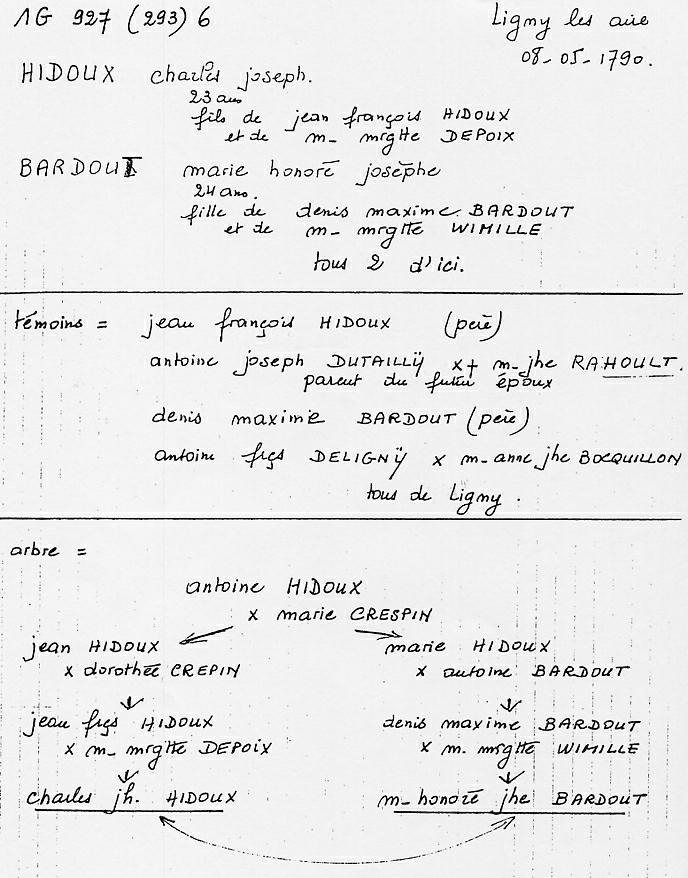 1G 927 (293) 6
Ligny les aire
08-05-1790.
HIDOUX charles joseph.
23 ans
fils de jean françois HIDOUX
et de m- mrgtte DEPOIX
BARDOUT marie honoré josèphe
24 ans.
fille de denis maxime BARDOUT
et de m- mrgtte WIMILLE
tous 2 d'ici.
témoins = jean françois HIDOUX (père)
antoine joseph DUTAILLÿ x+ m-jhe RAHOULT.
parent du futur époux
denis maxime BARDOUT (père)
antoine frçs DELIGNÿ x m-anne jhe BOCQUILLON
tous de Ligny.
arbre =
antoine HIDOUX
x marie CRESPIN
jean HIDOUX marie HIDOUX
x dorothée CREPIN x antoine BARDOUT
jean frçs HIDOUX denis maxime BARDOUT
x m- mrgtte DEPOIX x m. mrgtte WIMILLE
charles jh. HIDOUX m-honoré jhe BARDOUT